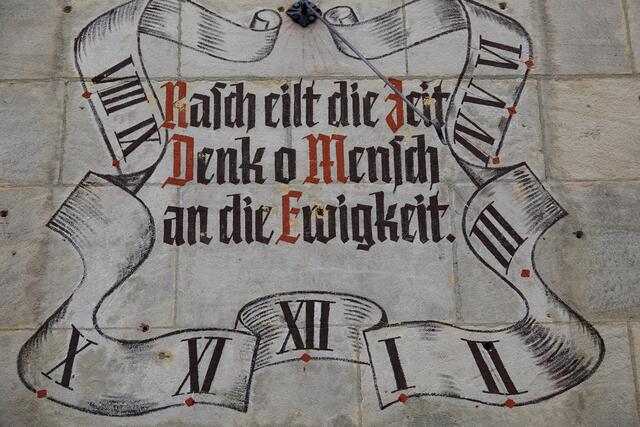 Rasch eilt die Zeit
Denk o Mensch
an die Ewigkeit.
VIII
IX
X
XI
XII
I
II
III
IV
V
VI